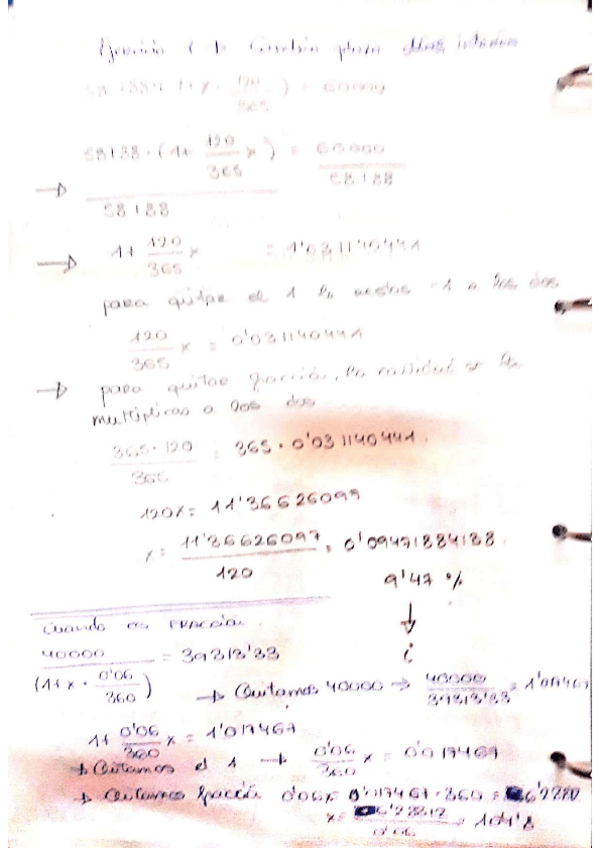 58188 (1+x · 120/365) = 60000
→ 58188 · (1+ 120/365 x) / 58188 = 60000/58188
→ 1+ 120/365 x = 1'031140441
para quitar el 1 lo restas -1 a los dos
120/365 x = 0'031140441
→ para quitar fracción, la cantidad se la
multiplicas a los dos
365·120/365 = 365 · 0'031140441.
120x = 11'36626097
x = 11'36626097/120 = 0'09471884138
9'47 %
↓
i
Cuando es FRACCIÓN.
40000/(1+x · 0'06/360) = 39313'33
→ Quitamos 40000 → 40000/39313'33 = 1'017467
1+ 0'06/360 x = 1'017467
→ Quitamos el 1 → 0'06/360 x = 0'017467
→ Quitamos fracción 0'06x = 0'017467 · 360 =
x = /0'06 = 104'8